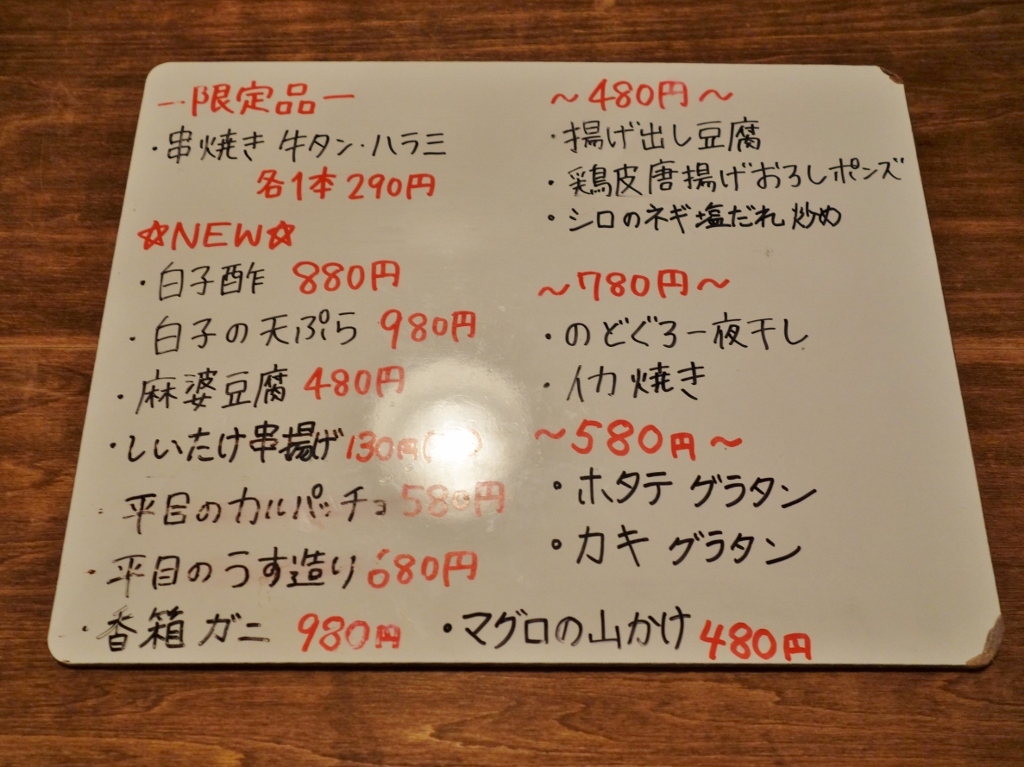 －限定品－
・串焼き 牛タン・ハラミ
各1本 290円
☆NEW☆
・白子酢 880円
・白子の天ぷら 980円
・麻婆豆腐 480円
・しいたけ串揚げ 130円
・平目のカルパッチョ 580円
・平目のうす造り 680円
・香箱ガニ 980円
・マグロの山かけ 480円
～480円～
・揚げ出し豆腐
・鶏皮唐揚げおろしポンズ
・シロのネギ塩だれ炒め
～780円～
・のどぐろ一夜干し
・イカ焼き
～580円～
・ホタテグラタン
・カキグラタン